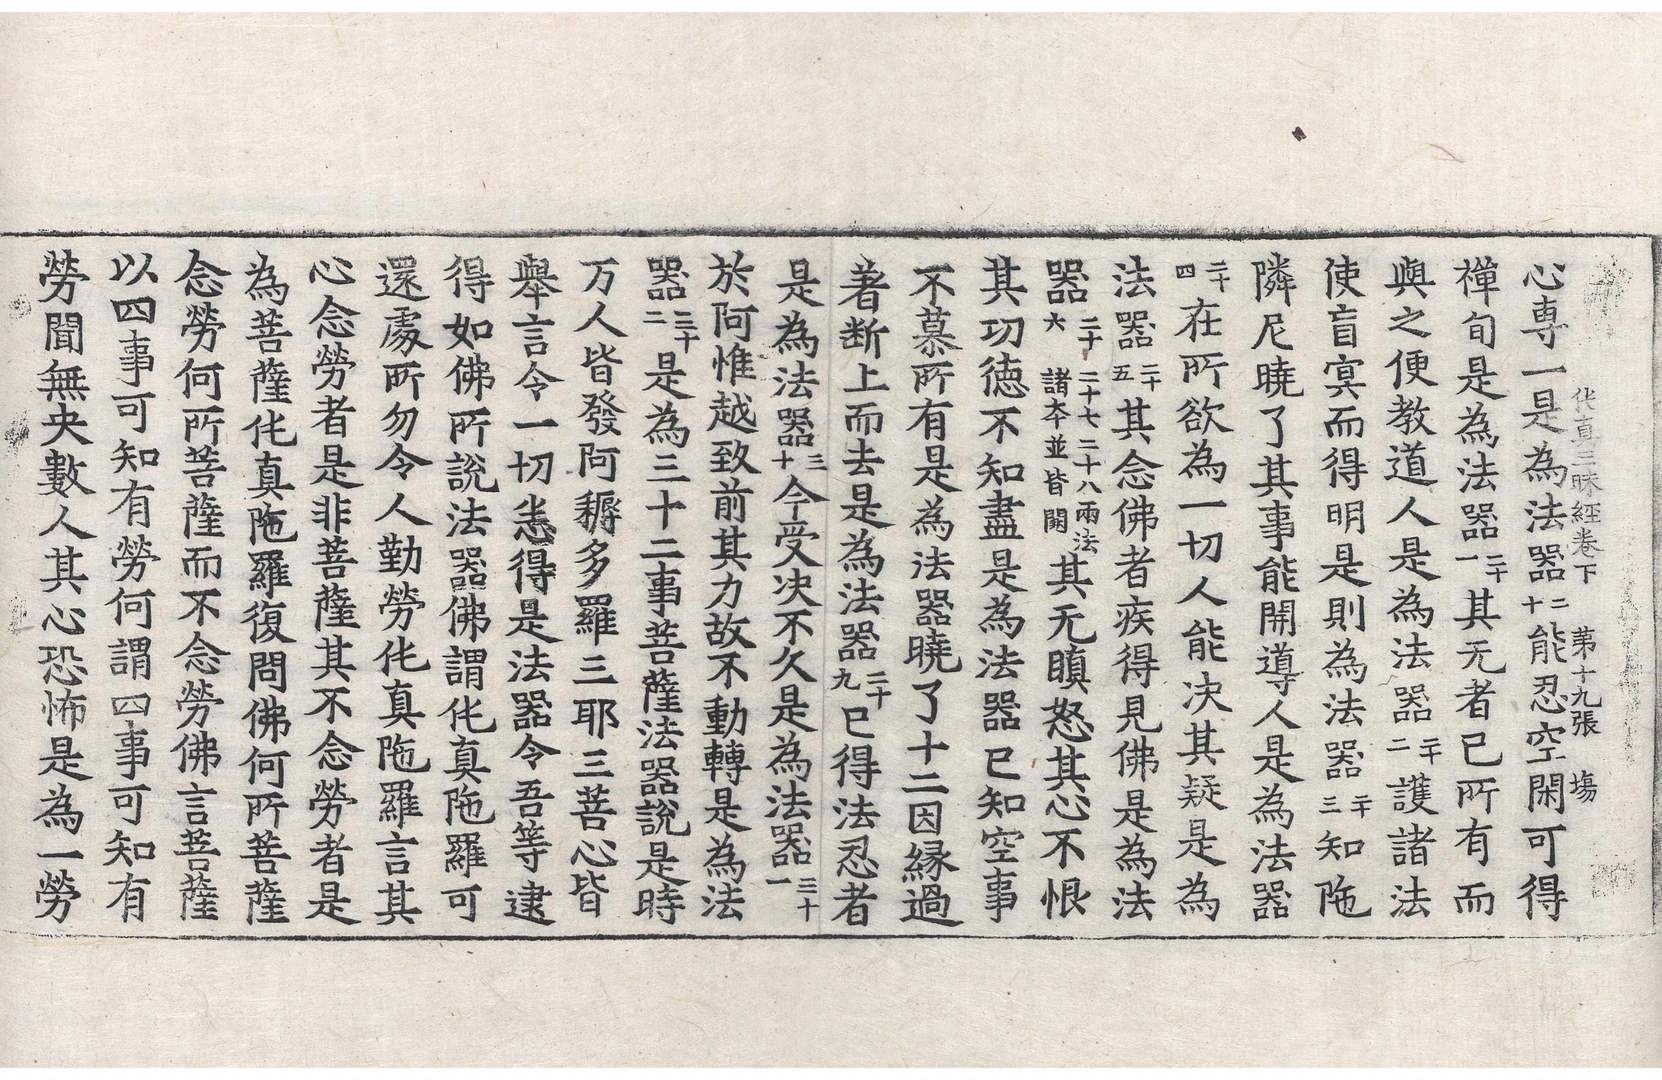 伅真三昧経卷下　苐十九張　塲
心専一是為法器二十能忍空閑可得
禅旬是為法器二十一其无者已所有而
與之便教道人是為法器二十二護諸法
使盲冥而得明是則為法器二十三知陁
隣尼曉了其事能開導人是為法器
二十四在所欲為一切人能决其疑是為
法器二十五其念佛者疾得見佛是為法
器二十六二十七二十八兩法諸夲並皆闕其无瞋怒其心不恨
其功徳不知盡是為法器已知空事
不慕所有是為法器曉了十二因縁過
著断上而去是為法器二十九已得法忍者
是為法器三十今受决不久是為法器三十一
於阿惟越致前其力故不動轉是為法
器三十二是為三十二事菩薩法器說是時
万人皆發阿耨多羅三耶三菩心皆
舉言令一切悉得是法器令吾等逮
得如佛所說法器佛謂伅真陁羅可
還處所勿令人勤勞伅真陁羅言其
心念勞者是非菩薩其不念勞者是
為菩薩伅真陁羅復問佛何所菩薩
念勞何所菩薩而不念勞佛言菩薩
以四事可知有勞何謂四事可知有
勞聞無央數人其心恐怖是為一勞